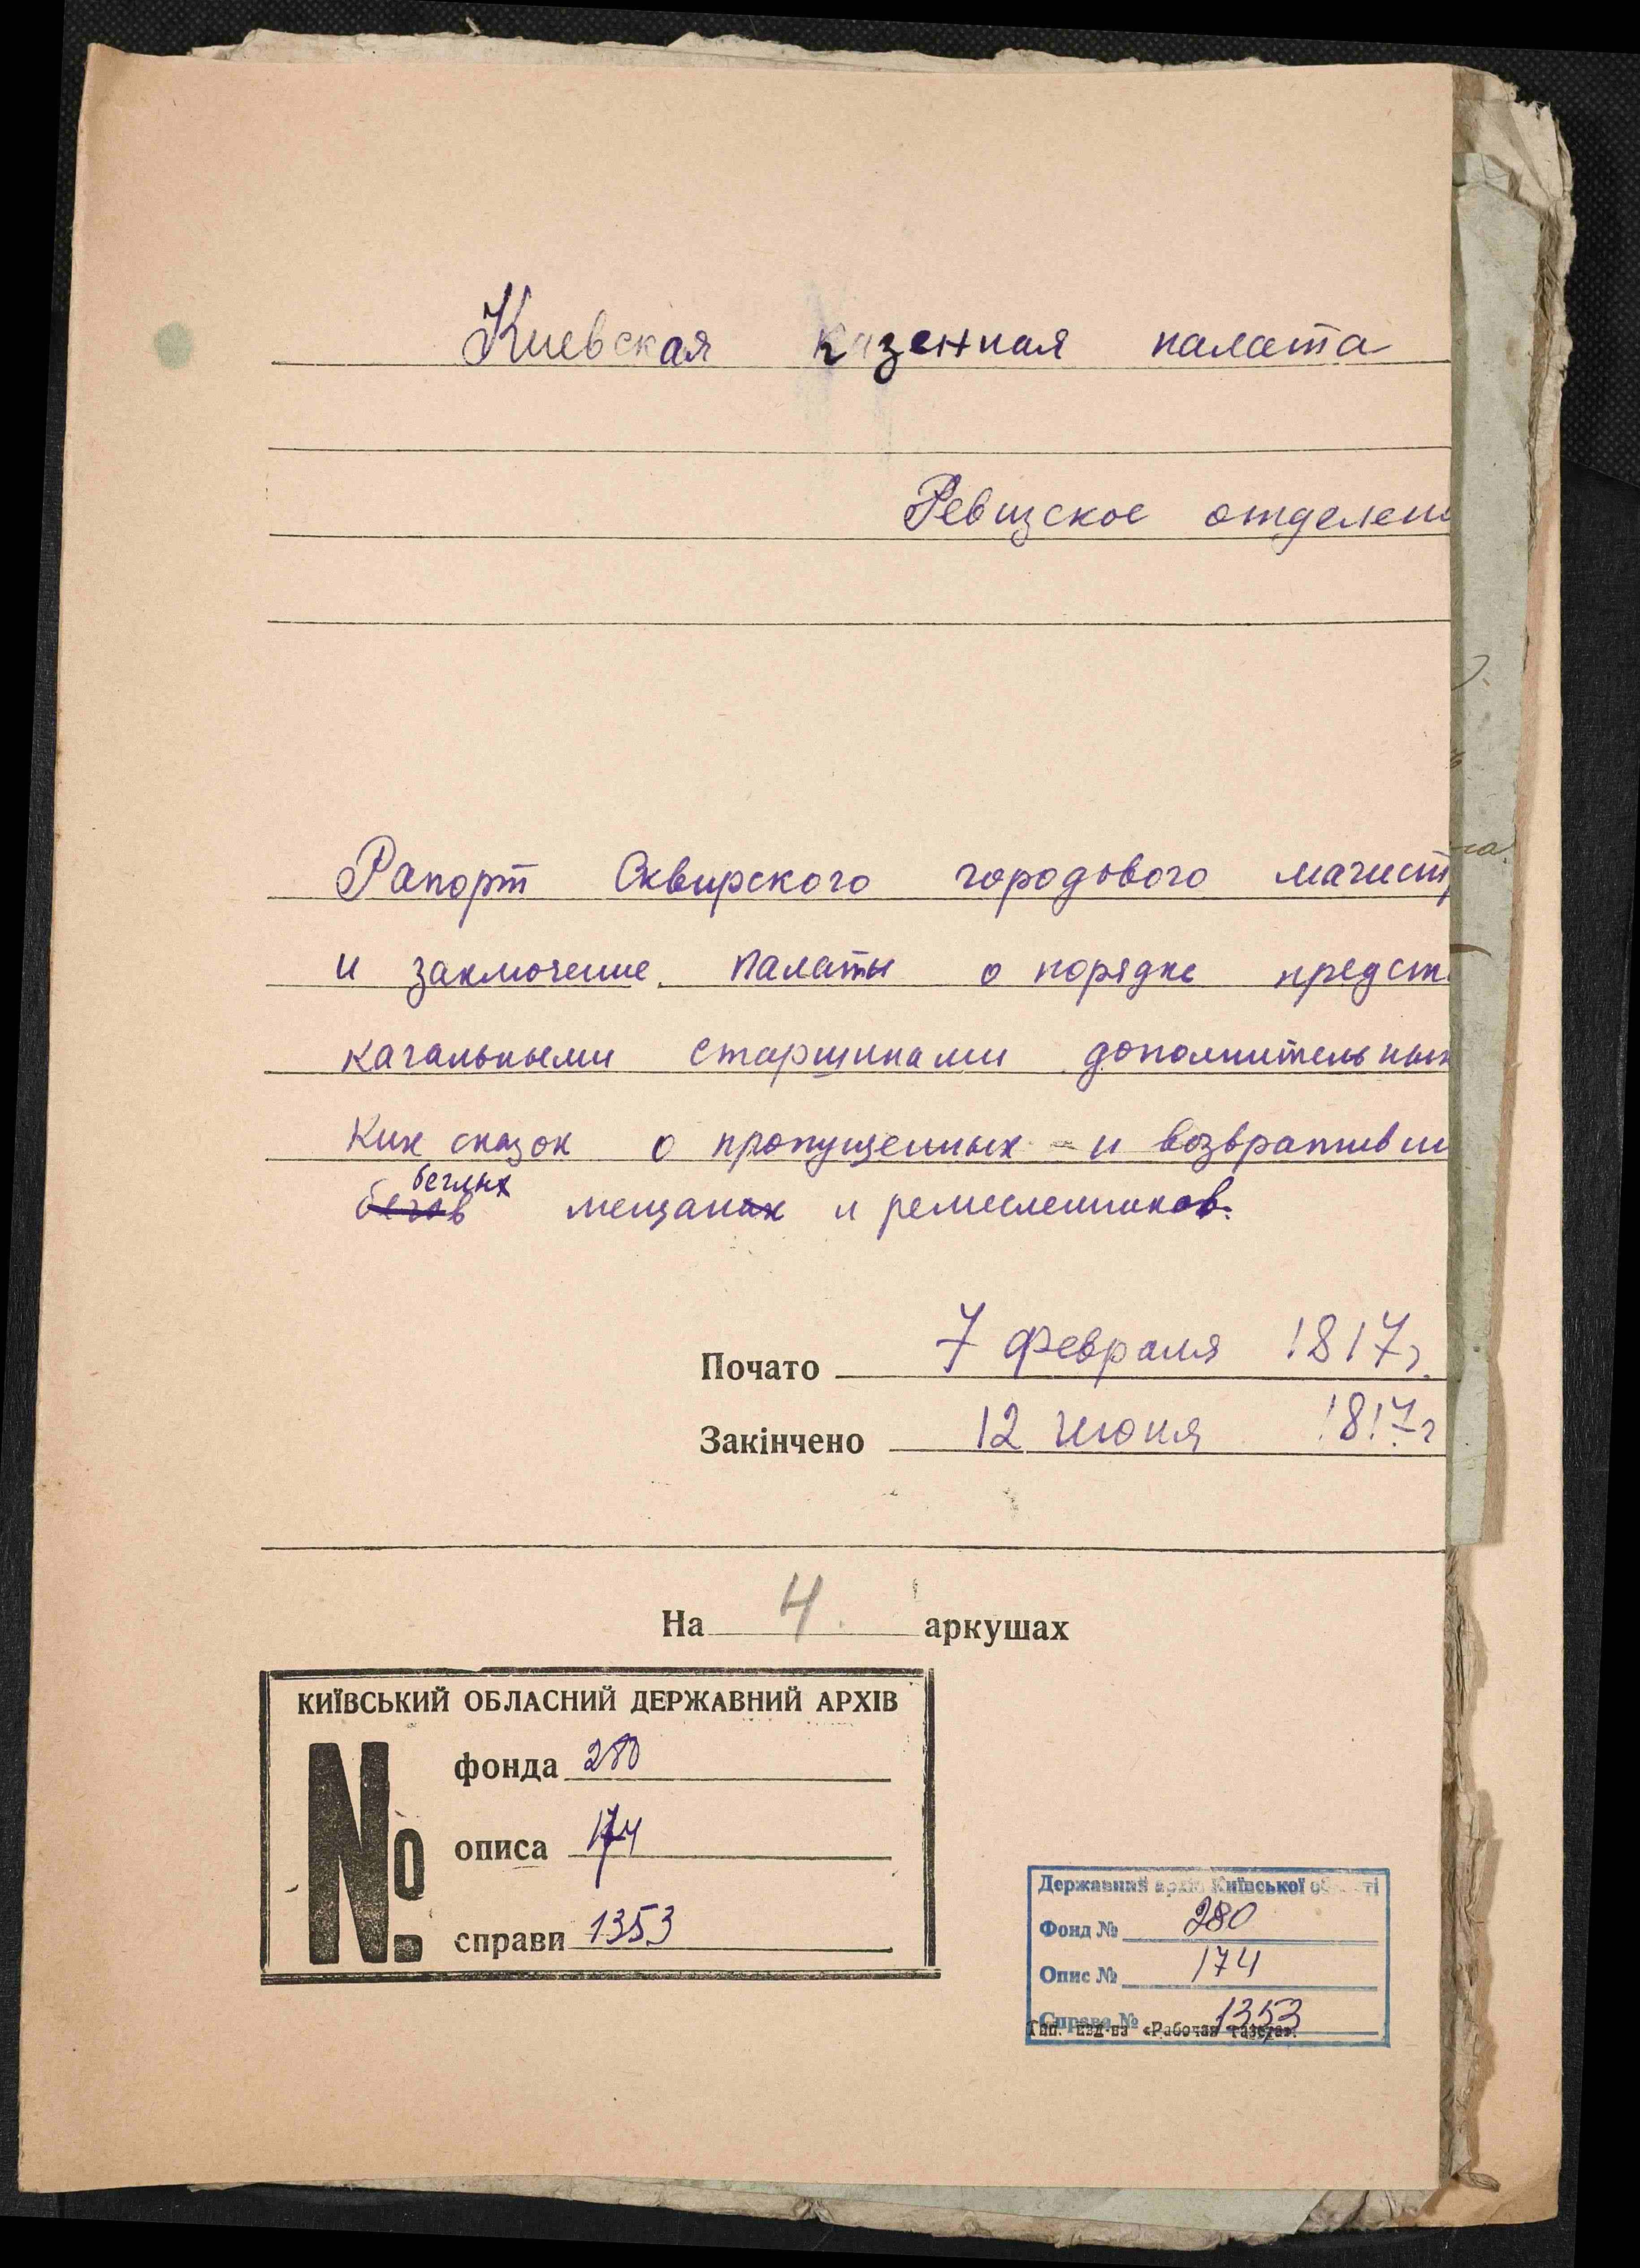 Киевская казенная палата
Ревизское отделен
Рапорт Сквирского городового магистр
и заключение палаты о порядке предст
кагальными старшинами дополнительны
ких сказок о пропущенных и возвративш
беглых
бегов мещанах и ремесленников.
Почато 7 февраля 1817 г.
Закінчено 12 июня 1817 г
На 4 аркушах
КИЇВСЬКИЙ ОБЛАСНИЙ ДЕРЖАВНИЙ АРХІВ
№
фонда 280
описа 174
справи 1353
Державний архів Київської області
Фонд № 280
Опис № 174
Справа № 1353
Тип. изд-ва «Рабочая газета».